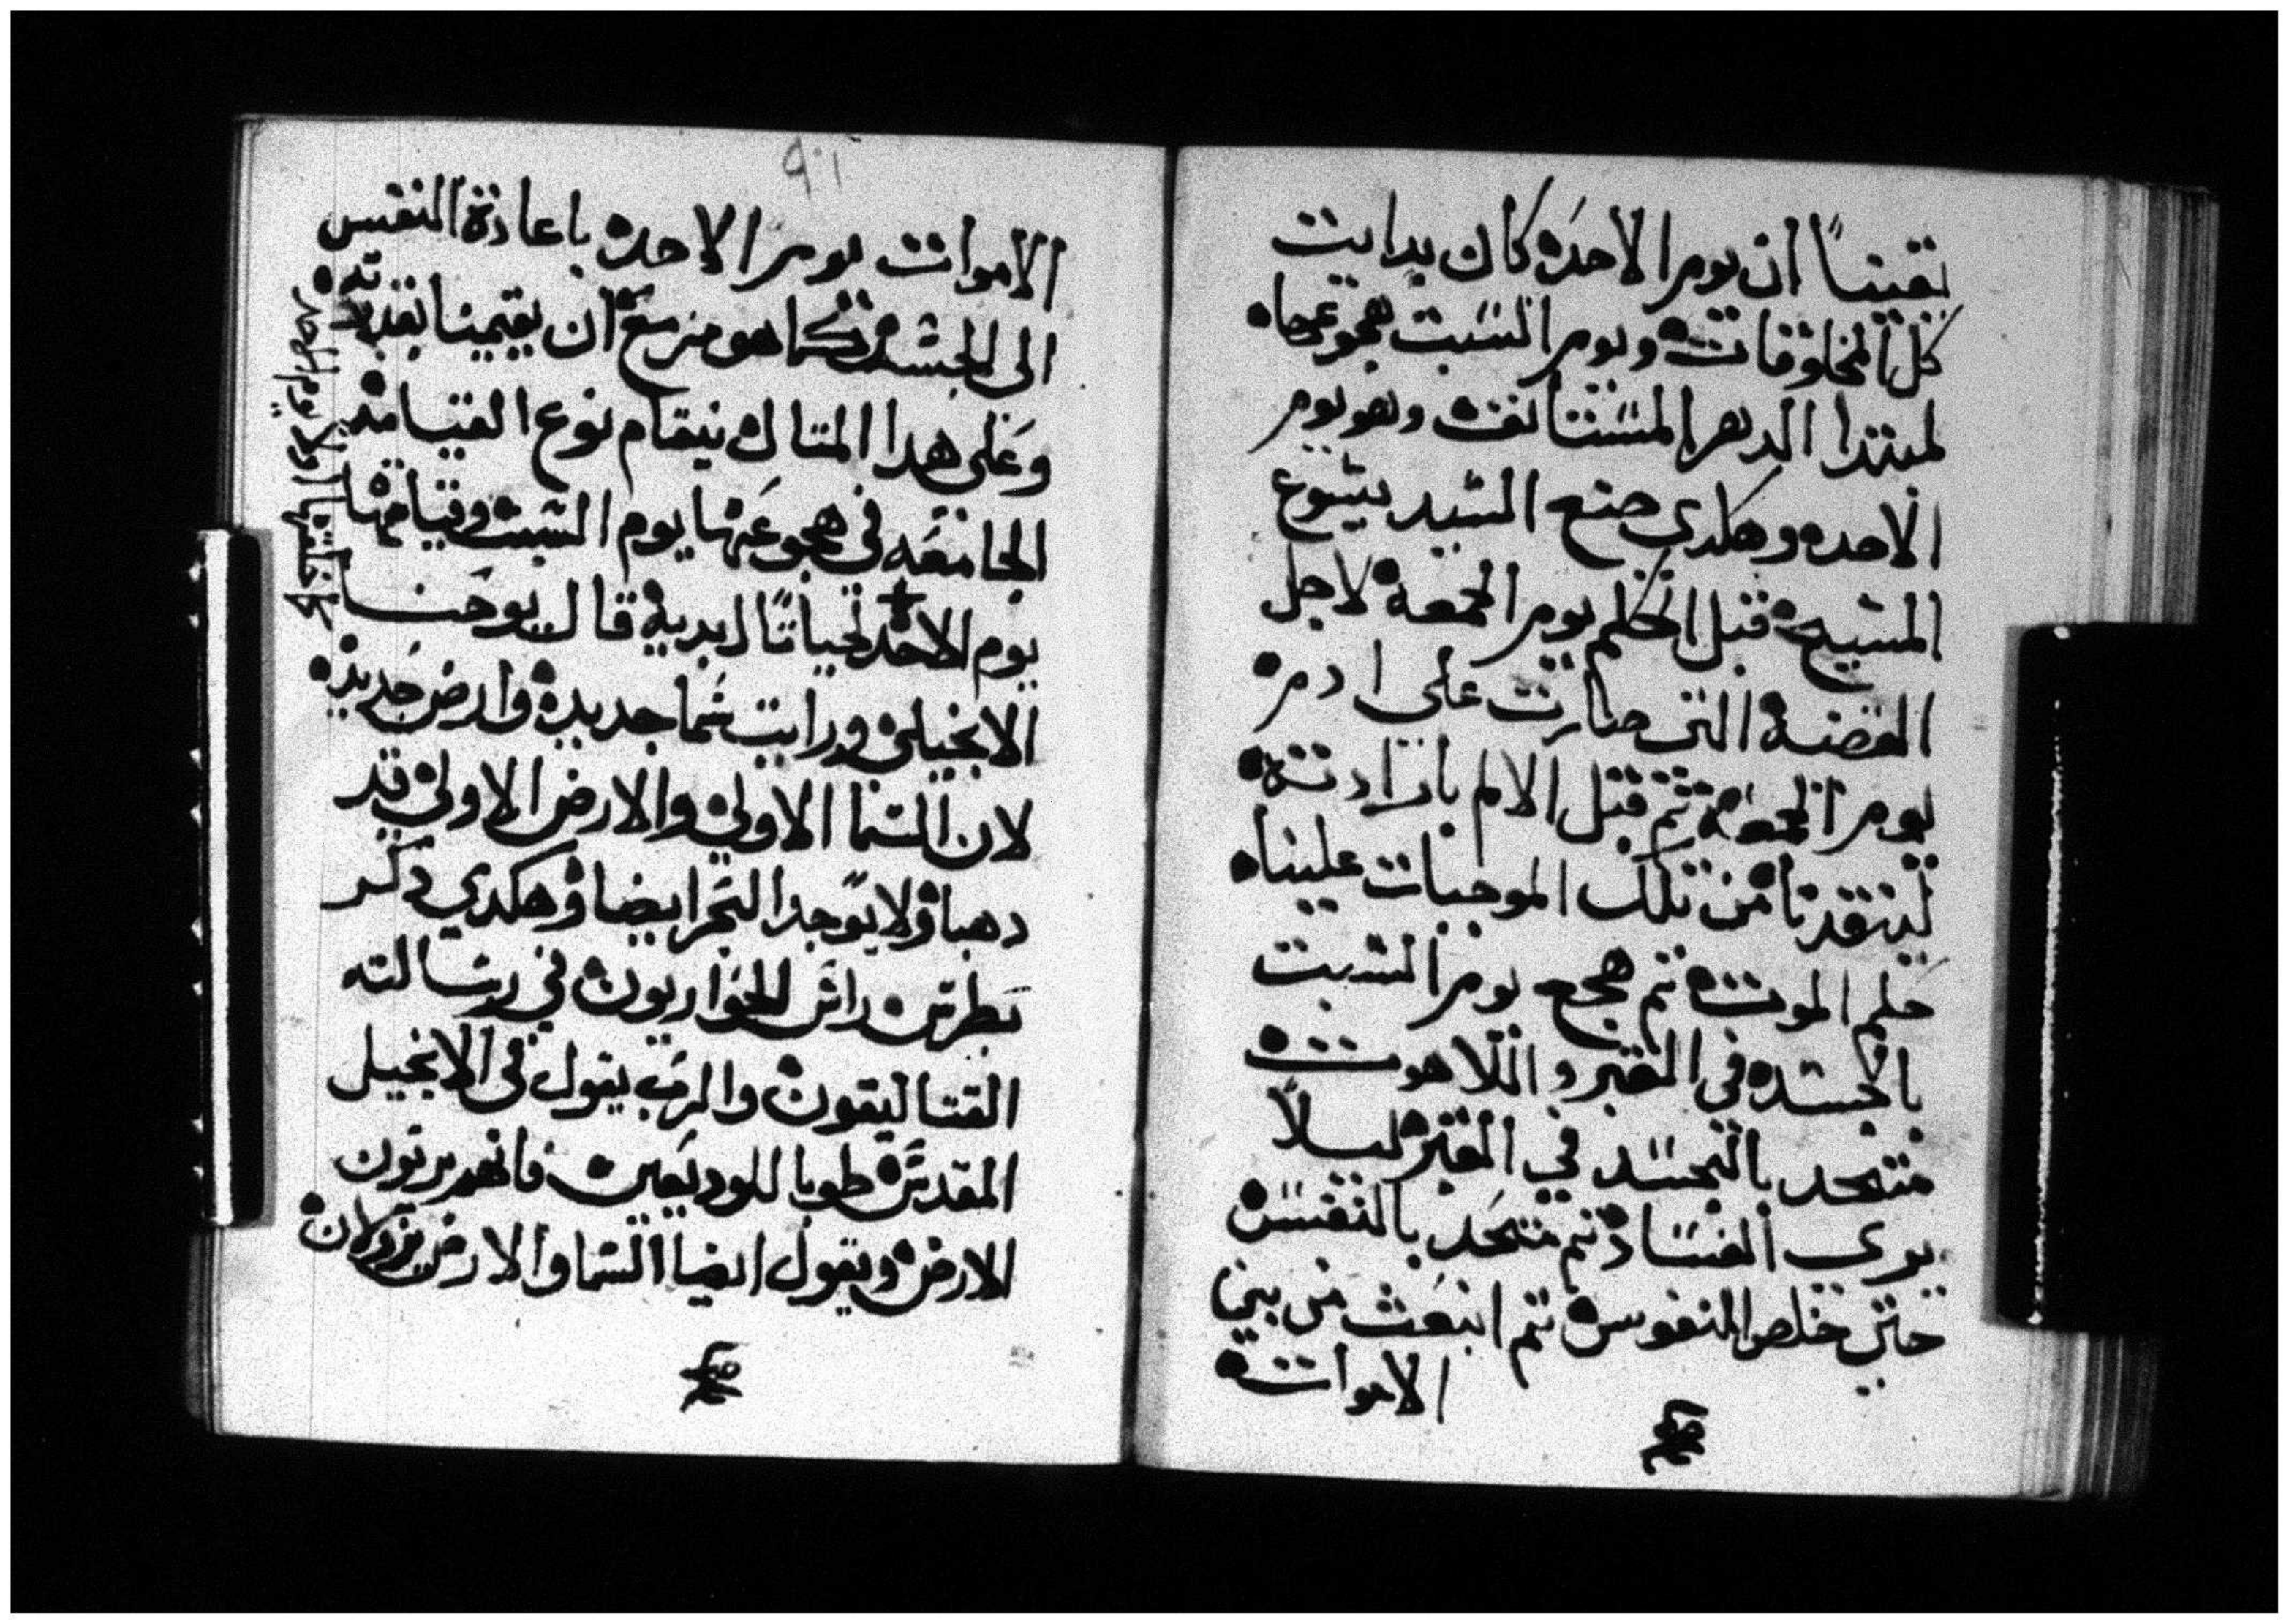 يقيناً ان يوم الاحده كان بدايت
كل المخلوقات ويوم السبت هجوعهاه
لمبتدا الدهر المستانف وهو يوم
الاحده وهكدي صنع السيد يسوع
المسيح قبل الحكم يوم الجمعة لاجل
القضية التي صارت علي ادم
يوم الجمعة ثم قبل الالم بارادته
لينقدنا من تلك الموجبات علينا
حكم الموت ثم هجع يوم السبت
بالجسد في القبر واللاهوت
متحد بالجسد في القبر ليلاً
يري الفساد ثم متحد بالنفس
حتي خلص النفوس ثم انبعث من بين
الاموات
٩٠١
الاموات يوم الاحده باعادة النفس
الى الجسد كما هو مزمع ان يقيمنا بقدرته
وعلى هدا المتال نيقام نوع القيامة
الجامعه في هجوعنها يوم السبت وقيامتها
يوم الاحد لحياتاً ابدية قال يوحنا
الانجيلي ورايت سما جديدة وارض جديده
لان السما الاولي والارض الاولي قد
دهبا ولا يوجد البحر ايضا وهكدي دكر
بطرس راس الحواريون في رسالته
القتاليقون والرب يقول في الانجيل
المقدس طوبا للوديعين فانهم يرتون
الارض ويقول ايضا السما والارض يزولان
خلقتها اولا يوم الاحد